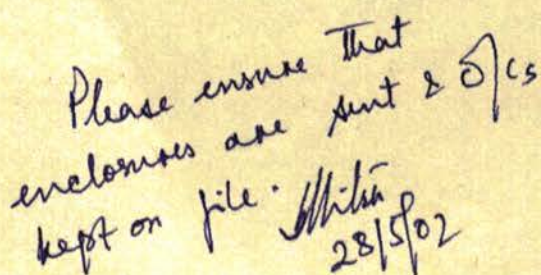 Please ensure that
enclosures are sent & O/Cs
kept on file.
28/5/02